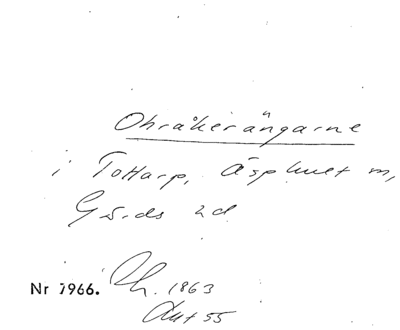 Ohråkerängarne
i Tottarp, Äsphult m,
Gärds hd
Nr 7966. 1863
Akt 55